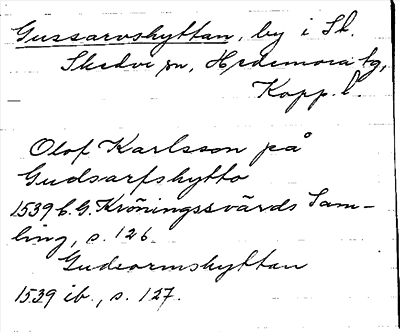 Gussarvshyttan, by i St.
Skedvi sn, Hedemora tg,
Kopp. l.
Olof Karlsson på
Gudsarfshytto
1539 C. G. Kröningssvärds Sam-
ling, s. 126.
Gudsormshyttan
1539 ib., s. 127.